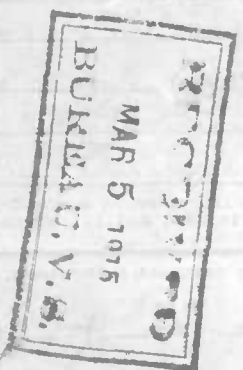 RECEIVED
MAR 5 1915
BUREAU. V. S.